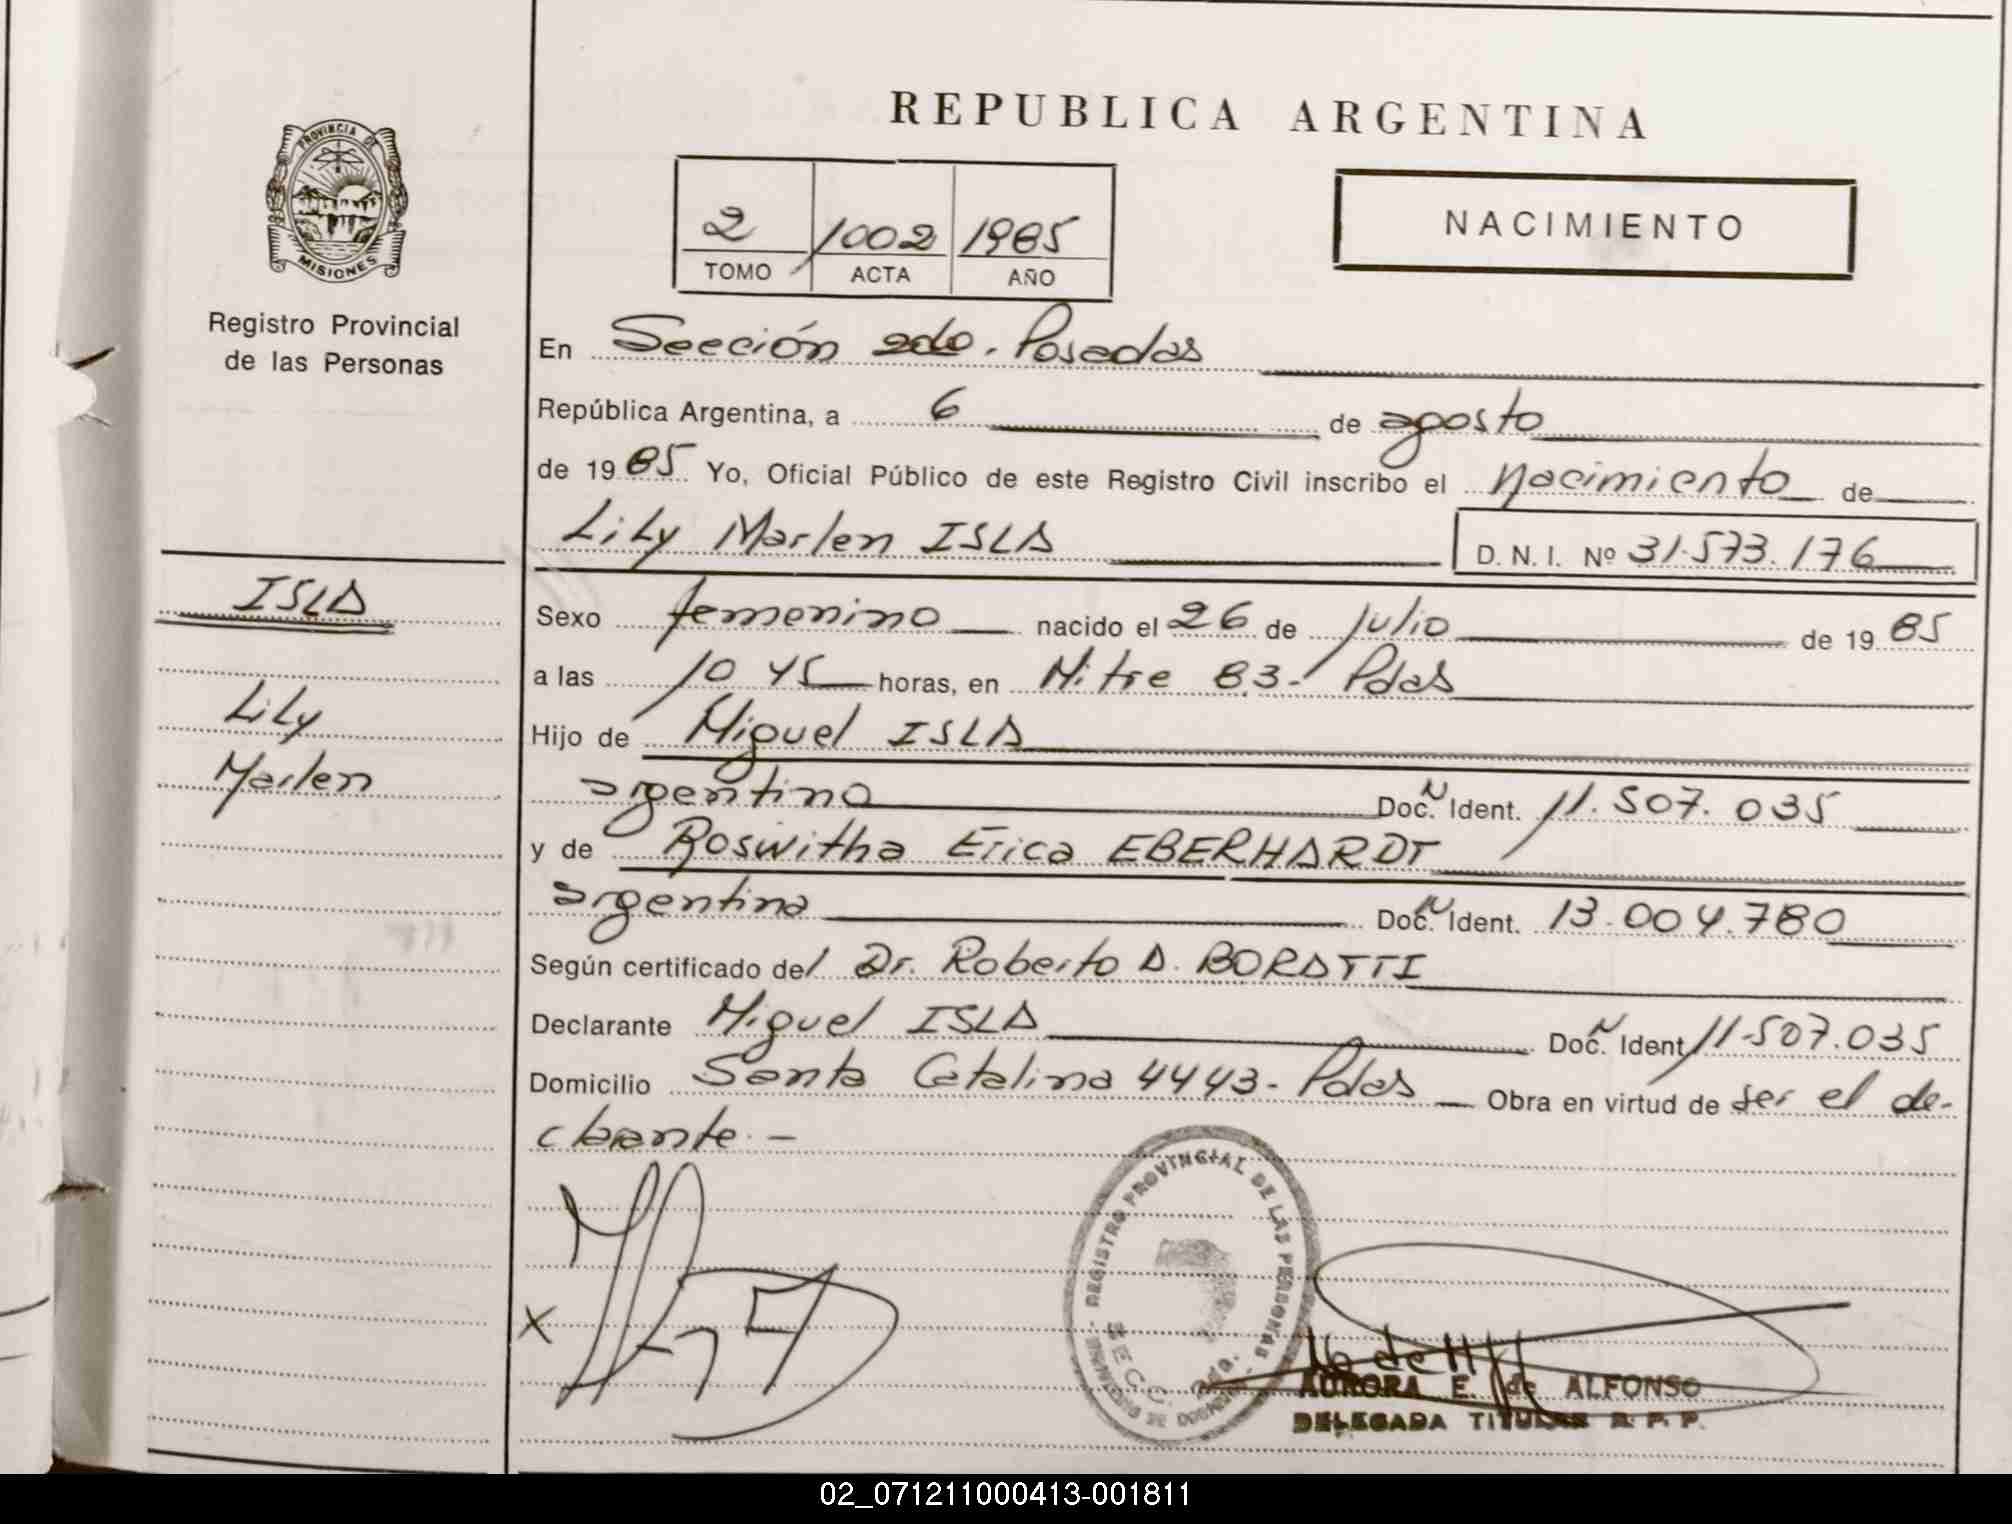 REPUBLICA ARGENTINA
PROVINCIA DE
MISIONES
Registro Provincial
de las Personas
2 1002 1985
TOMO ACTA AÑO
NACIMIENTO
En Sección 2do. Posadas
República Argentina, a 6 de agosto
de 1985 Yo, Oficial Público de este Registro Civil inscribo el nacimiento de
Lily Marlen ISLA D. N. I. Nº 31.573.176
ISLA
Lily
Marlen
Sexo femenino nacido el 26 de julio de 1985
a las 10 45 horas, en Mitre 83- Pdas
Hijo de Miguel ISLA
argentino Doc. Ident. 11.507.035
y de Roswitha Erica EBERHARDT
argentina Doc. Ident. 13.004.780
Según certificado del Dr. Roberto A. BORATTI
Declarante Miguel ISLA Doc. Ident 11.507.035
Domicilio Santa Catalina 4443- Pdas Obra en virtud de ser el de-
clarante.-
X
REGISTRO PROVINCIAL DE LAS PERSONAS
SECC. 2da.
AURORA E. de ALFONSO
DELEGADA TITULAR R. P. P.
02_071211000413-001811